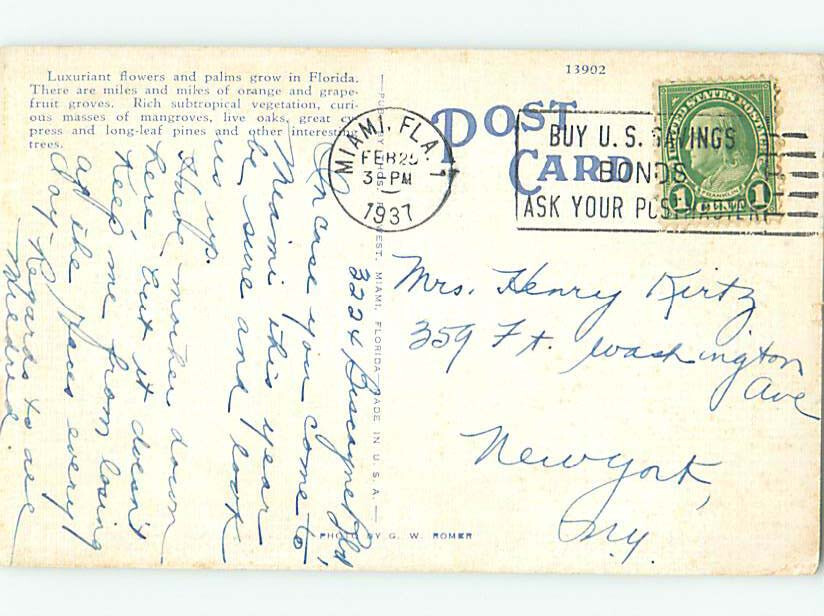 13902
Luxuriant flowers and palms grow in Florida.
There are miles and miles of orange and grape-
fruit groves. Rich subtropical vegetation, curi-
ous masses of mangroves, live oaks, great cy
press and long-leaf pines and other interesting
trees.
POST
CARD
MIAMI, FLA. 1
FEB 25
3 - PM
1937
BUY U.S. SAVINGS
BONDS
ASK YOUR POSTMASTER
UNITED STATES POSTAGE
FRANKLIN
1 CENT 1
3224 Biscayne Bld,
In case you come to
Miami this year
be sure and look
us up.
Have mother down
here but it doesn't
keep me from losing
at the races every
day - Regards to all
Mildred.
Mrs. Henry Kirtz
359 Ft. Washington
Ave
New York,
N.Y.
MIAMI, FLORIDA MADE IN U.S.A.
PHOTO BY G. W. ROMER